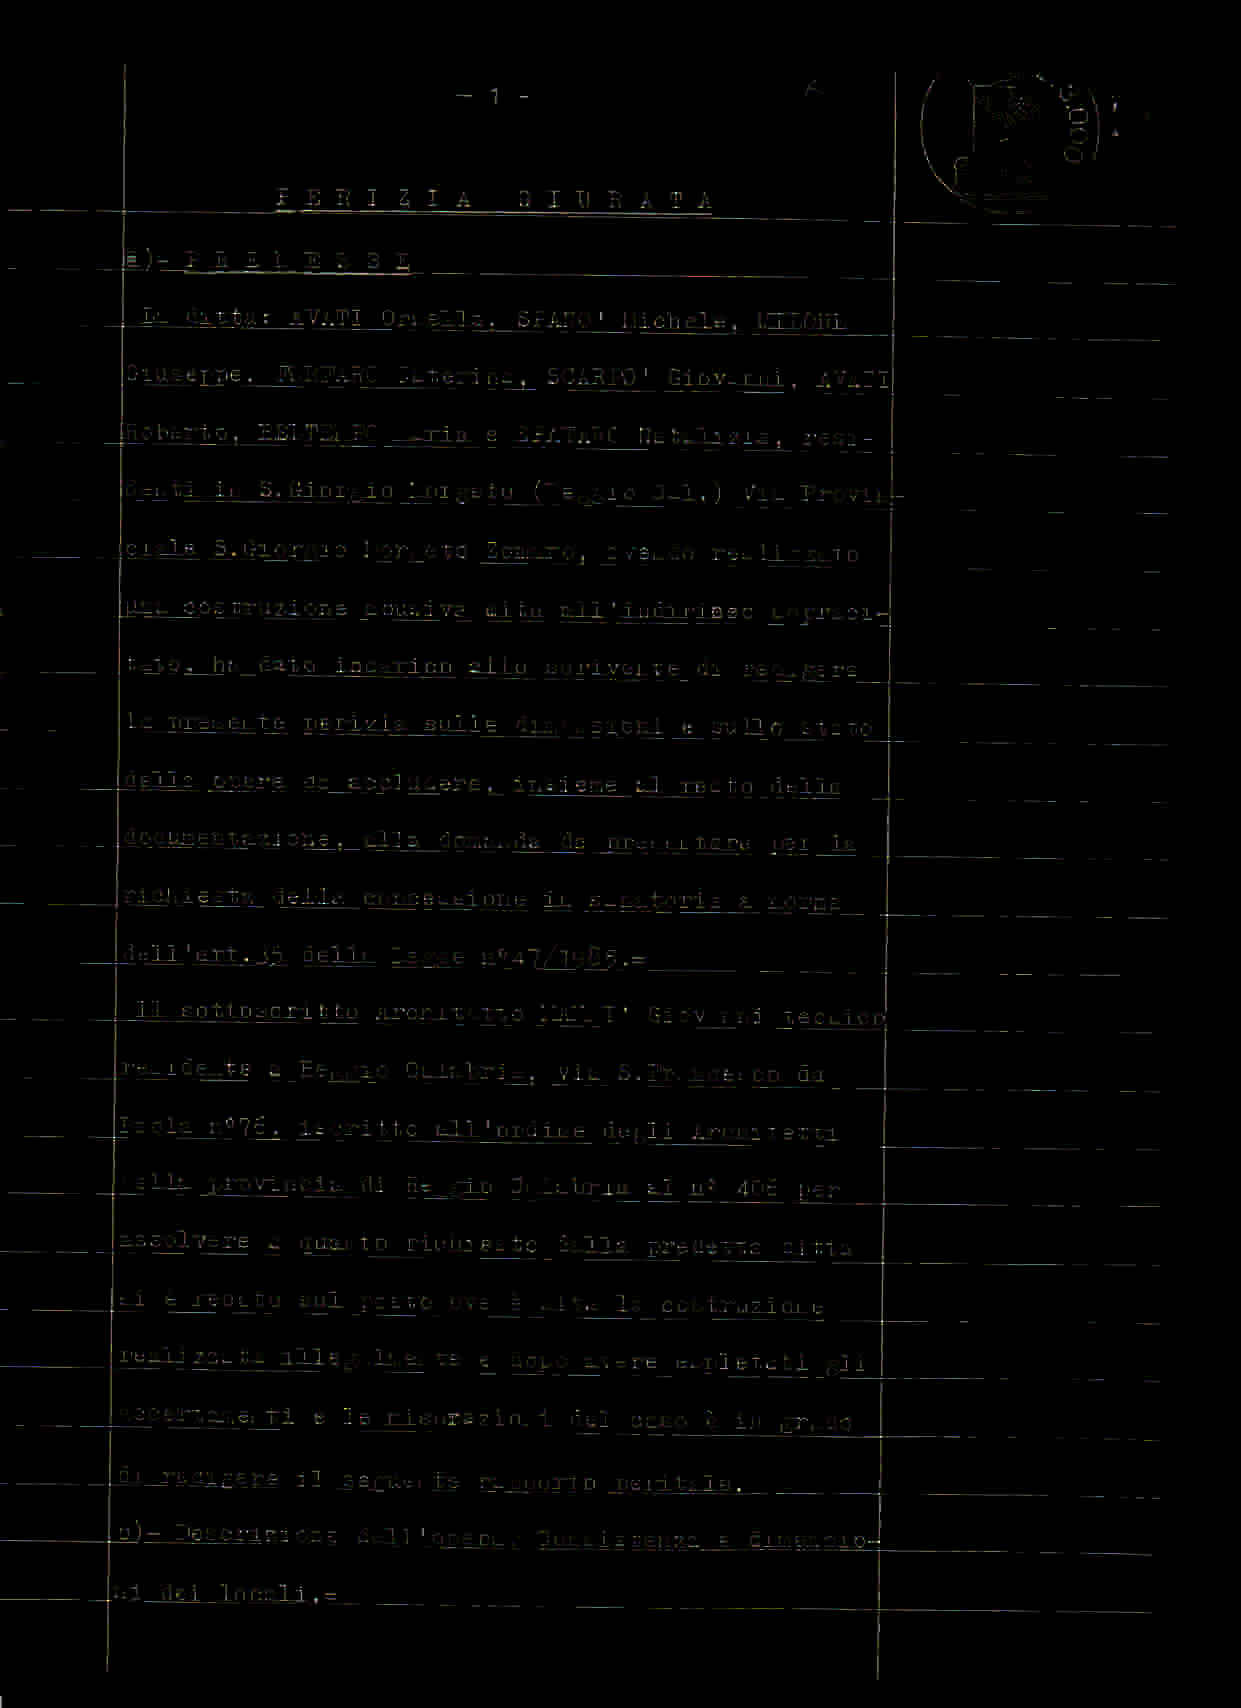 - 1 -
PERIZIA GIURATA
a)- PREMESSE
La ditta: AVATI Ornella, SPANO' Michele,
Giuseppe, Caterina, SCARFO' Giovanni, AVATI
Roberto, Maria e SPATARO Natalizia, resi-
denti in S.Giorgio Morgeto (Reggio Cal.) Via Provin-
ciale S.Giorgio Morgeto Zomaro, avendo realizzato
una costruzione abusiva sita all'indirizzo sopraci-
tato, ha dato incarico allo scrivente di redigere
la presente perizia sulle dimensioni e sullo stato
delle opere da accludere, insieme al resto della
documentazione, alla domanda da presentare per la
richiesta della concessione in sanatoria a norma
dell'art.35 della legge n°47/1985.=
Il sottoscritto architetto Giovanni tecnico
residente a Reggio Calabria, via S.Francesco da
Paola n°76, iscritto all'ordine degli Architetti
della provincia di Reggio Calabria al n° 406 per
assolvere a quanto richiesto dalla predetta ditta
si è recato sul posto ove è sita la costruzione
realizzata illegalmente e dopo avere espletati gli
accertamenti e le misurazioni del caso è in grado
di redigere il seguente rapporto peritale.
Descrizione dell'opera, Consistenza e dimensio-
ni dei locali.=